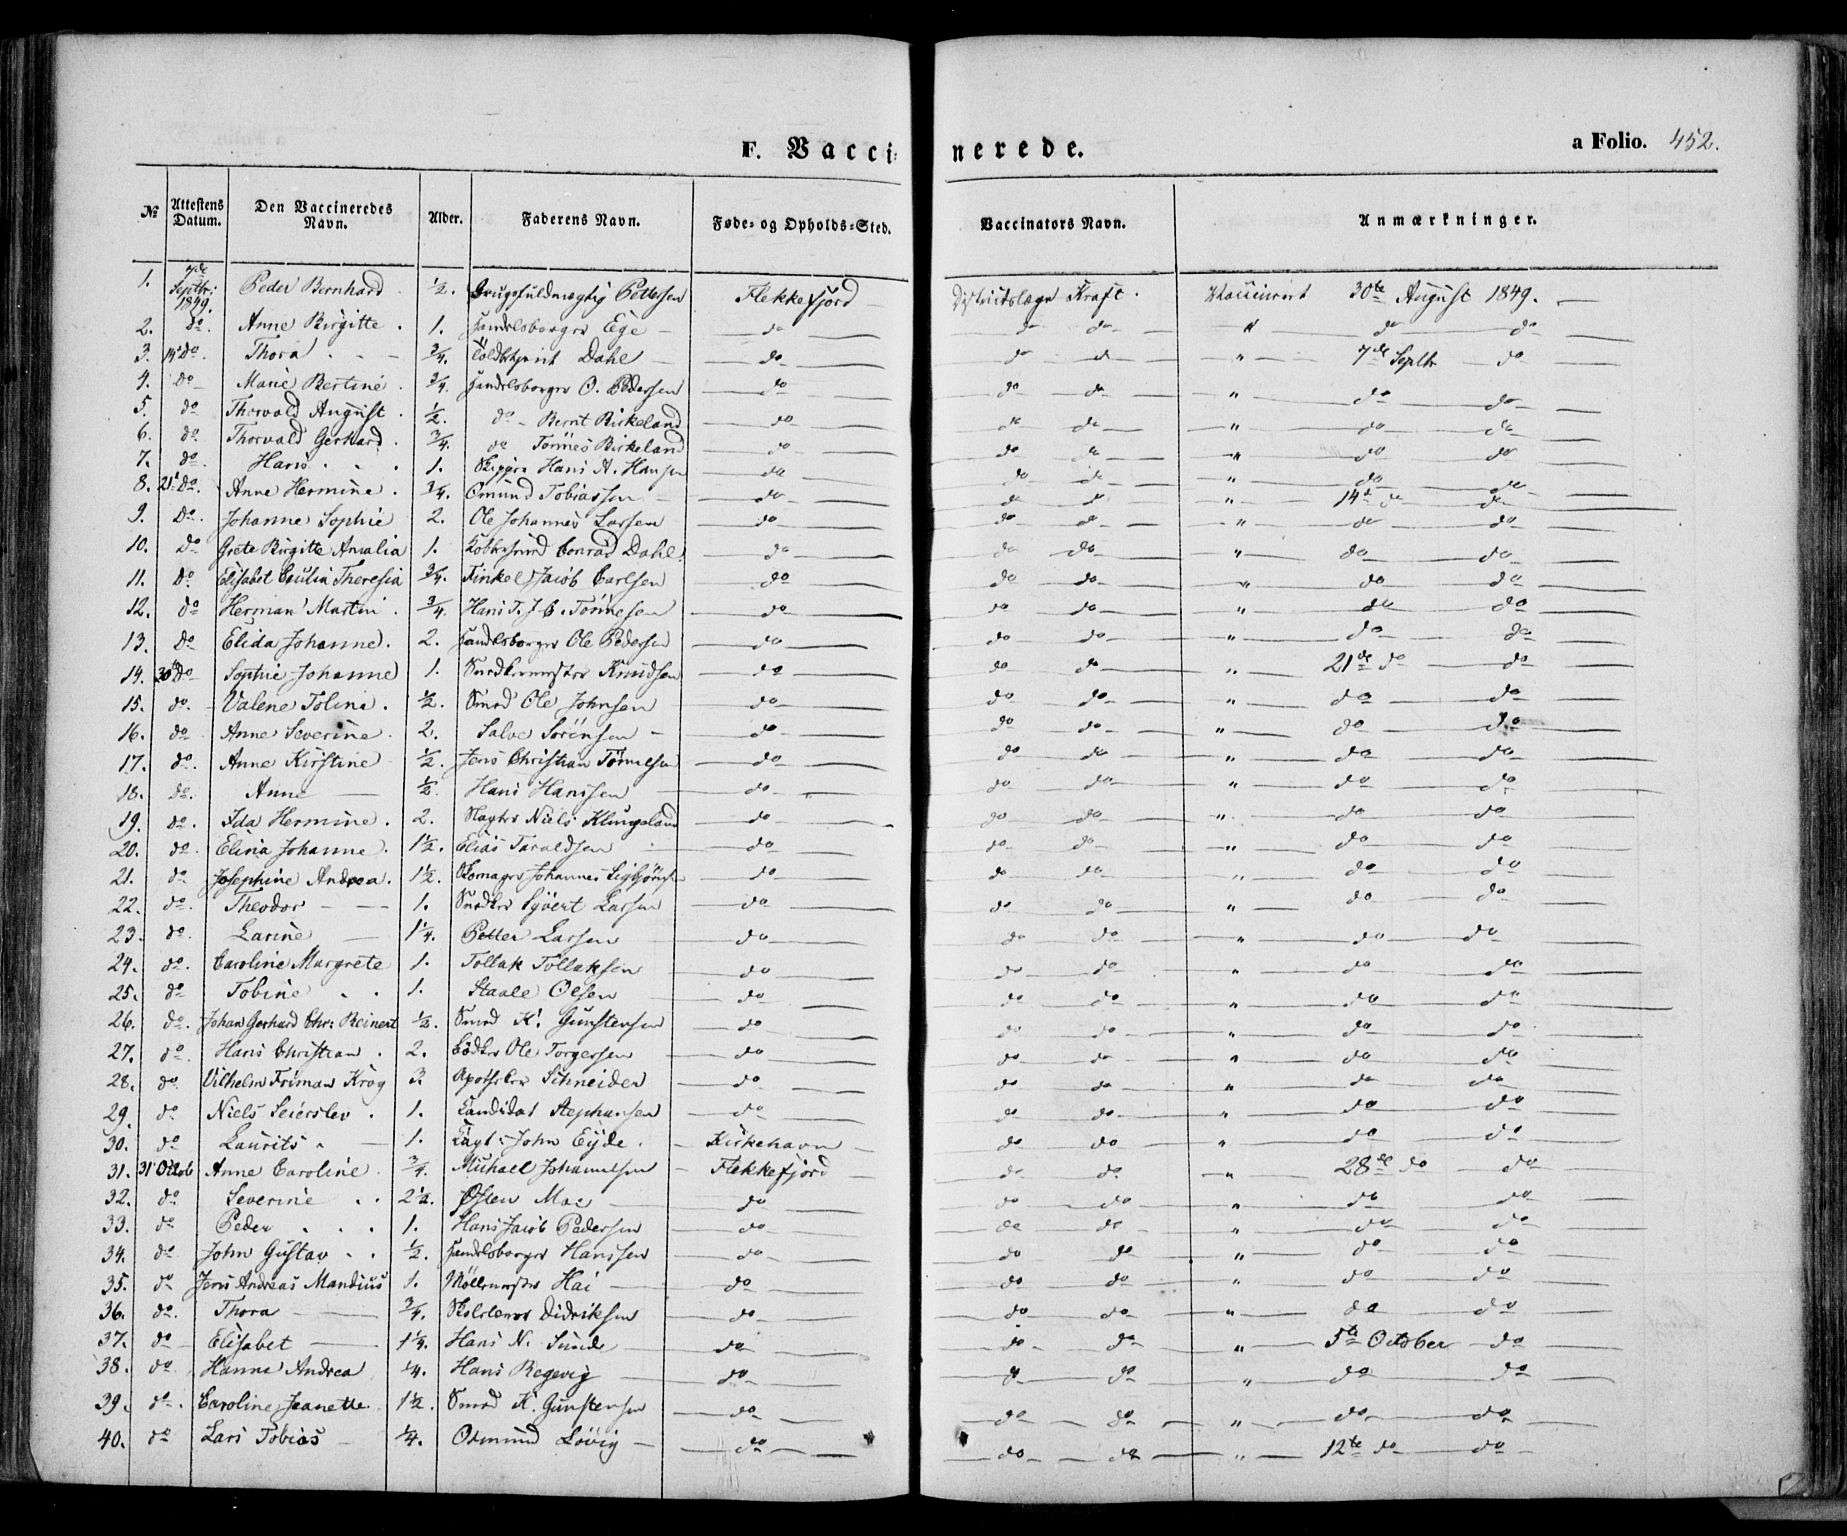 F. Vaccinerede. a Folio. 452.
№ Attestens Datum. Den Vaccineredes Navn. Alder. Faderens Navn. Føde- og Opholds-Sted. Vaccinators Navn. Anmærkninger.
1. 7de Septbr: 1849. Peder Bernhard ½. Brugsfuldmægtig Pettersen Flekkefjord Districtslæge Kraft. Vaccineret 30te August 1849.
2. do. Anne Birgitte. 1. Handelsborger Ege do do do " do do
3. 14d do. Thora ¾. Toldbetjent Dahl do do do " 7de Septbr do
4. do Marie Bertine. ¾. Handelsborger O. Pedersen do do do " do do
5. do Thorvald August. ½. do Bernt Birkeland do do do " do do
6. do Thorvald Gerhard. ¾. do Tönnes Birkeland do do do " do do
7. do. Hans 1. Skipper Hans A. Hansen do do do " do do
8. 21d do. Anne Hermine. ¾. Omund Tobiassen do do do " 14d do do
9. Do. Johanne Sophie 2. Ole Johannes Larsen do do do " do do
10. Do Grete Birgitte Amalia 1. Conrad Dahl do do do " do do
11. Do Elisabet Theresia ¾. Jacob Carlsen do do do " do do
12. do Herman Martin. ¾. Hans T. J. C. Tönnesen do do do " do do
13. Do Elida Johanne. 2. Handelsborger Ole Pedersen do do do " do do
14. 30te Do Sophie Johanne 1. Knudsen do do do " 21de do do
15. do. Valene Toline. ½. Smed Ole Johnsen do do do " do do
16. do Anne Severine. 2. Salve Sörensen do do do " do do
17. do. Anne Kirstine ½. Jens Christian Tönnesen do do do " do do
18. do. Anne ½. Hans Hanssen do do do " do do
19. do. Ida Hermine. 2. Slagter Niels Klungeland do do do " do do
20. do. Elina Johanne. 1½. Elias Taraldsen do do do " do do
21. do Josephine Andrea. 1½. Skomager Johannes do do do " do do
22. do. Theodor 1. Snedker Syvert Larsen do do do " do do
23. do. Larine 1¼. Petter Larsen do do do " do do
24. do. Caroline Margrete 1. Tollak Tollaksen do do do " do do
25. do Tobine 1. Staale Olsen do do do " do do
26. do. Johan Gerhard Chr: Reinert ½. Smed K. Gunstensen do do do " do do
27. do. Hans Christian. 2. Bödker Ole Torgersen do do do " do do
28. do. Vilhelm Friman Krog 3. Apotheker Schneider do do do " do do
29. do Niels Seierslev. 1. Candidat Stephansen do do do " do do
30. do Laurits 1. Capt: John Eyde. Kirkehavn do do " do do
31. 31d Octob Anne Caroline. ¾. Michael Johannesen Flekkefjord do do " 28de do do
32. do Severine 2½. Osten Moe do do do " do do
33. do Peder 1. Hans Jacob Pedersen do do do " do do
34. do John Gustav ½. Handelsborger Hanssen do do do " do do
35. do Jens Andreas Mandius 1. Möllermester Hai do do do " do do
36. do. Thora ¾. Skolelærer Didriksen do do do " do do
37. do Elisabet 1¼. Hans N. Sunde do do do " 5te October do
38. do Hanne Andrea ¼. Hans Regevig do do do " do do
39. do. Caroline Jeanette 1½. Smed K. Gunstensen do do do " do do
40. do Lars Tobias ¼. Odmund Lövig do do do " 12te do do